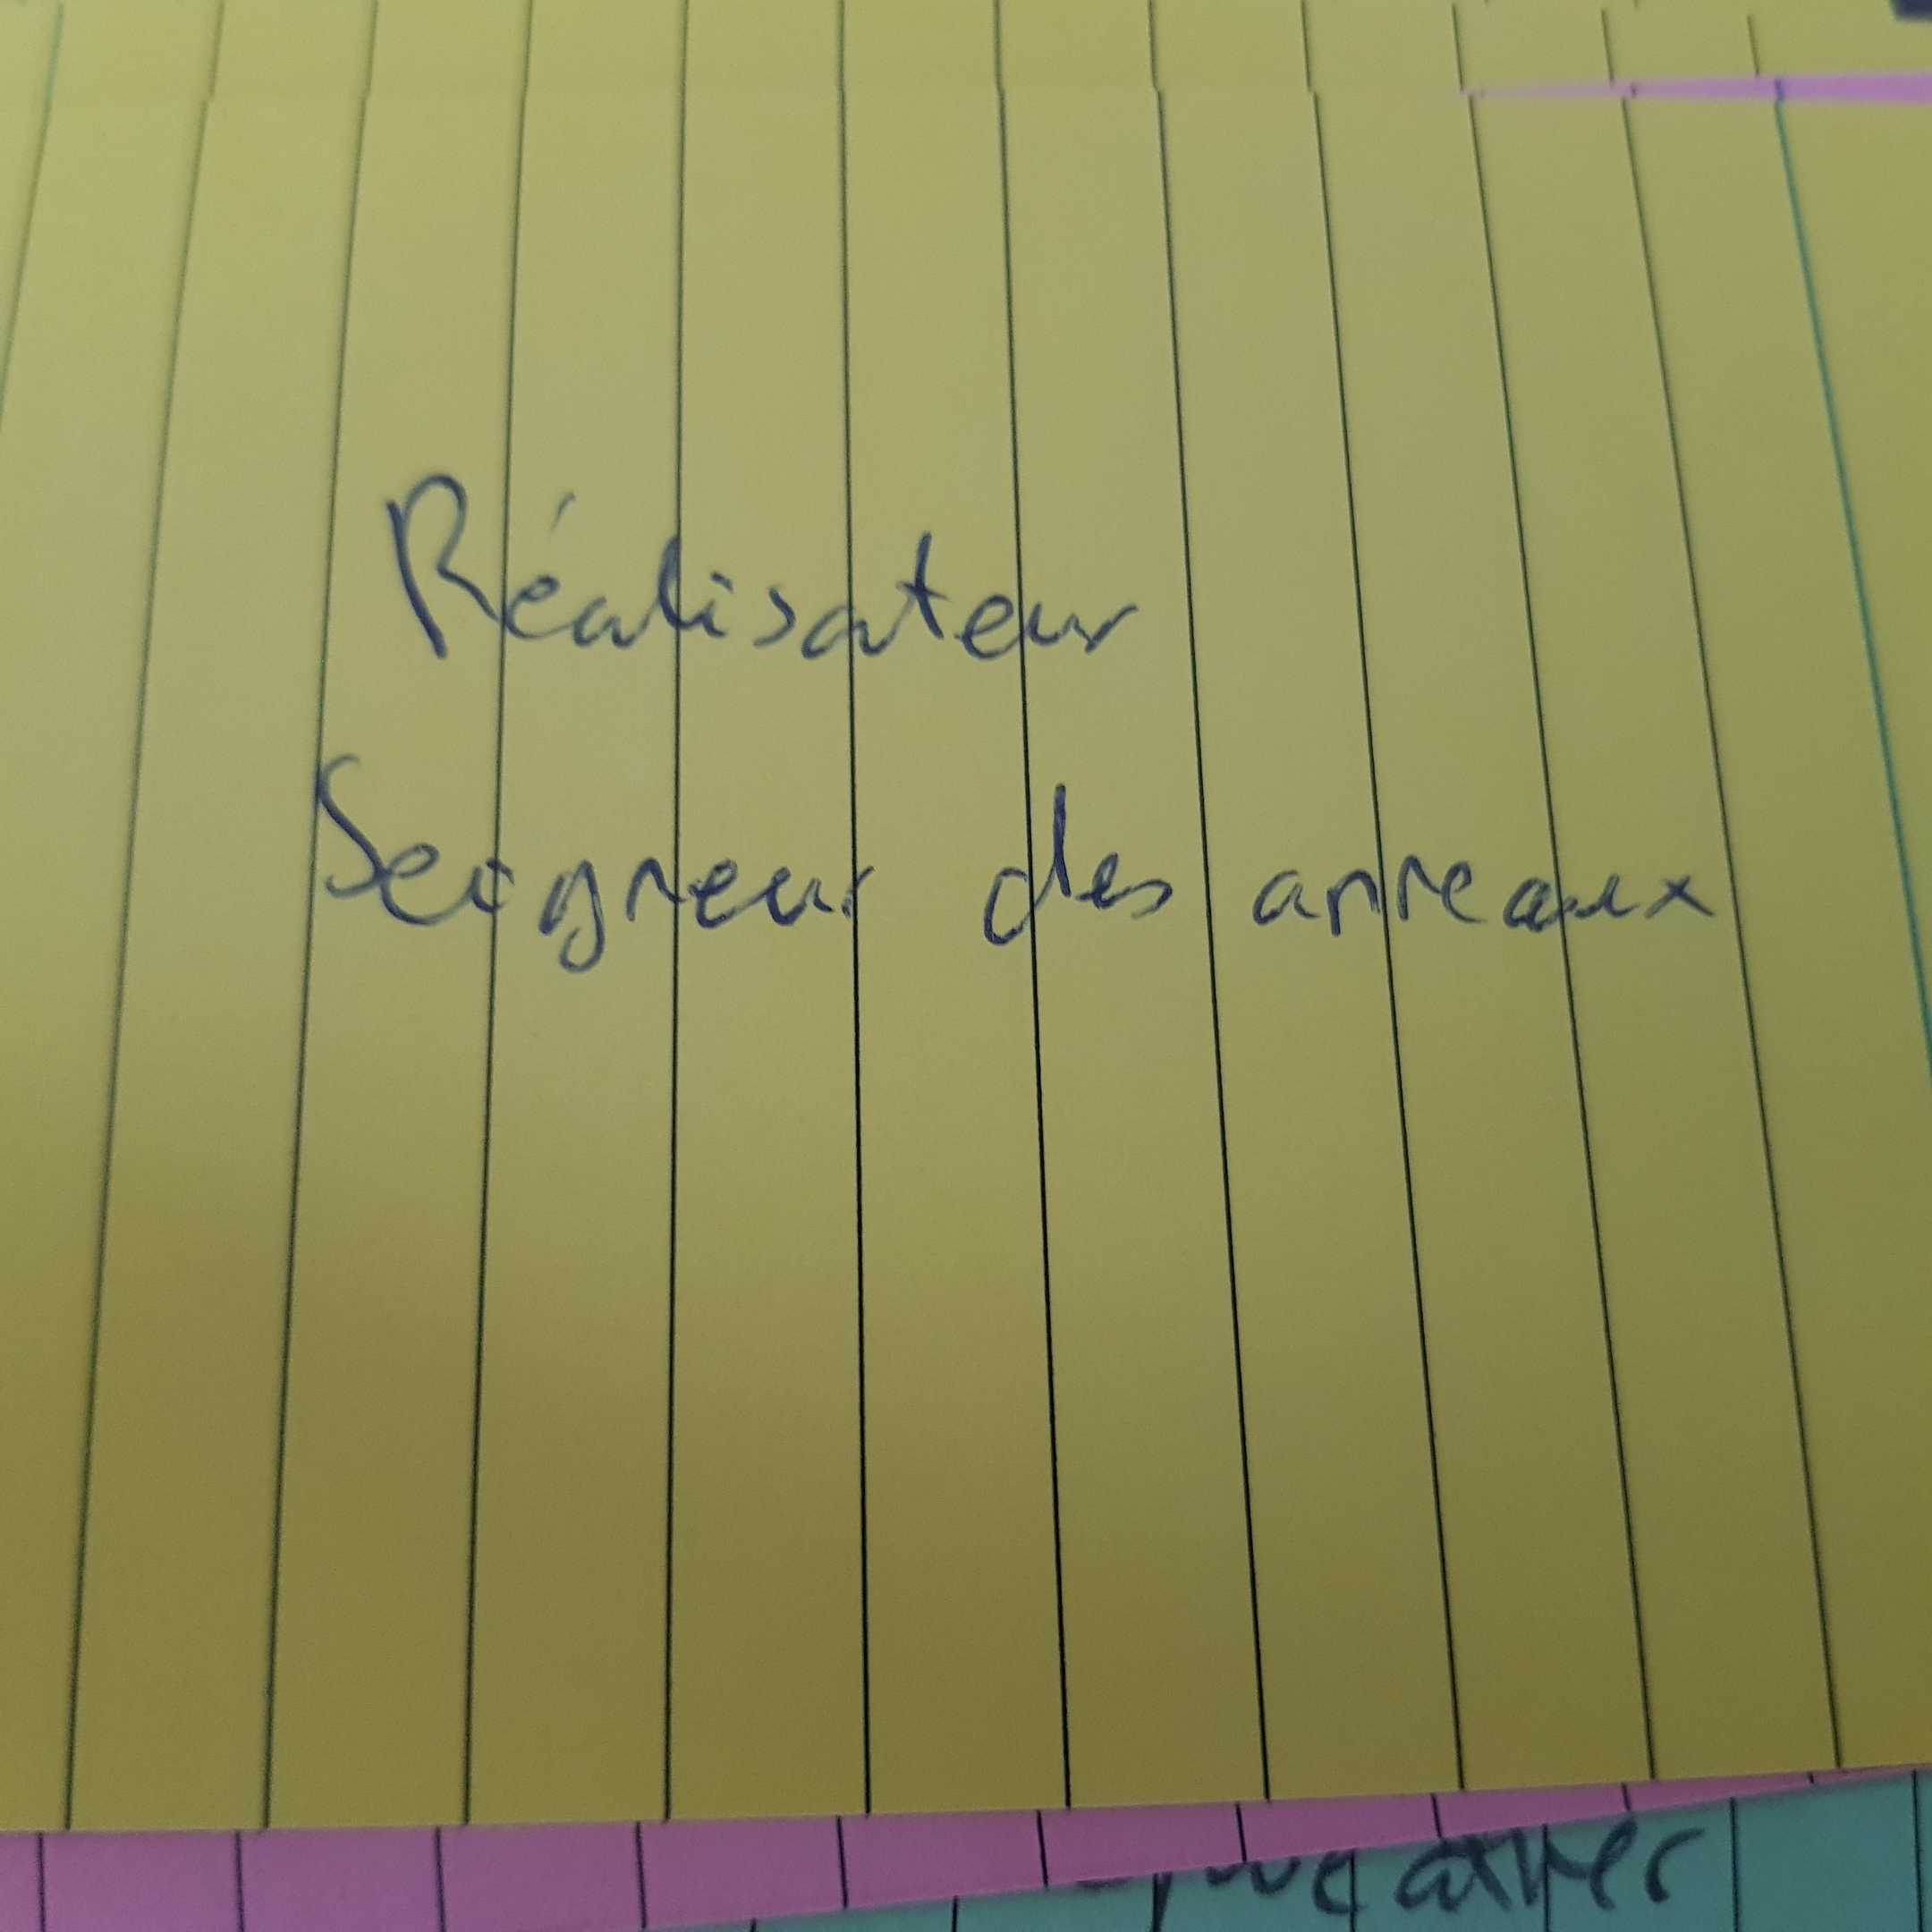 Réalisateur
Seigneur des anneaux